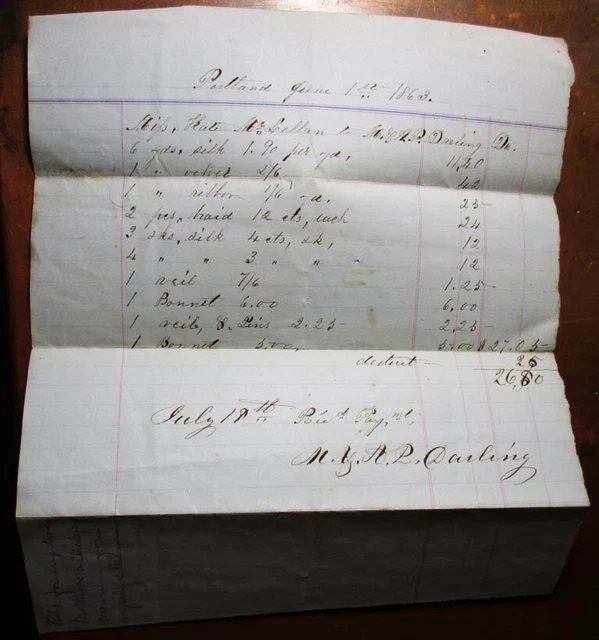 Portland June 1st 1863.
Miss, Kate McLellan to M. & A. P. Darling Dr.
6 yds, silk 1.90 per yd, 11,40
1 " velvet 2/6 42
1 " ribbon 1/6 yd. 25
2 pcs, braid 12 cts, each 24
3 sks, silk 4 cts, sk, 12
4 " " 3 " " 12
1 veil 7/6 1.25
1 Bonnet 6.00 6,00
1 veil, & Pins 2.25 2,25
1 Bonnet 5.00, 5.00 $27.05
deduct 25
26,80
July 18th Rec'd Pay,mt,
M. & A. P. Darling